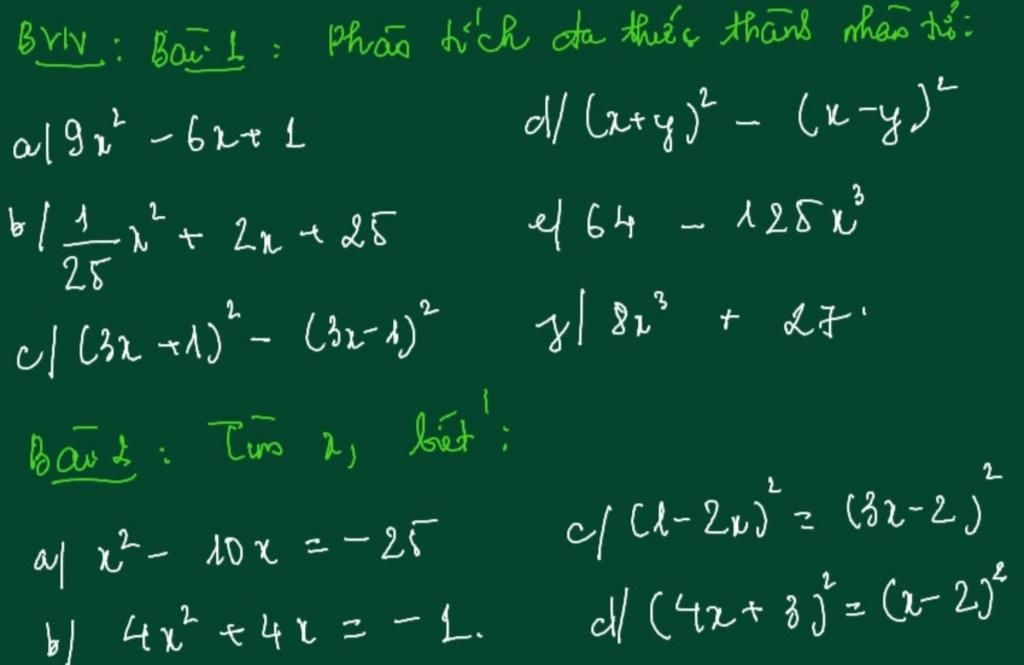 BVN: Bài 1: Phân tích đa thức thành nhân tử:
a/ 9x² - 6x + 1
d/ (x+y)² - (x-y)²
b/ 1/25 x² + 2x + 25
e/ 64 - 125x³
c/ (3x+1)² - (3x-1)²
g/ 8x³ + 27.
Bài 2: Tìm x, biết:
a/ x² - 10x = -25
c/ (1-2x)² = (3x-2)²
b/ 4x² + 4x = -1.
d/ (4x+3)² = (x-2)²